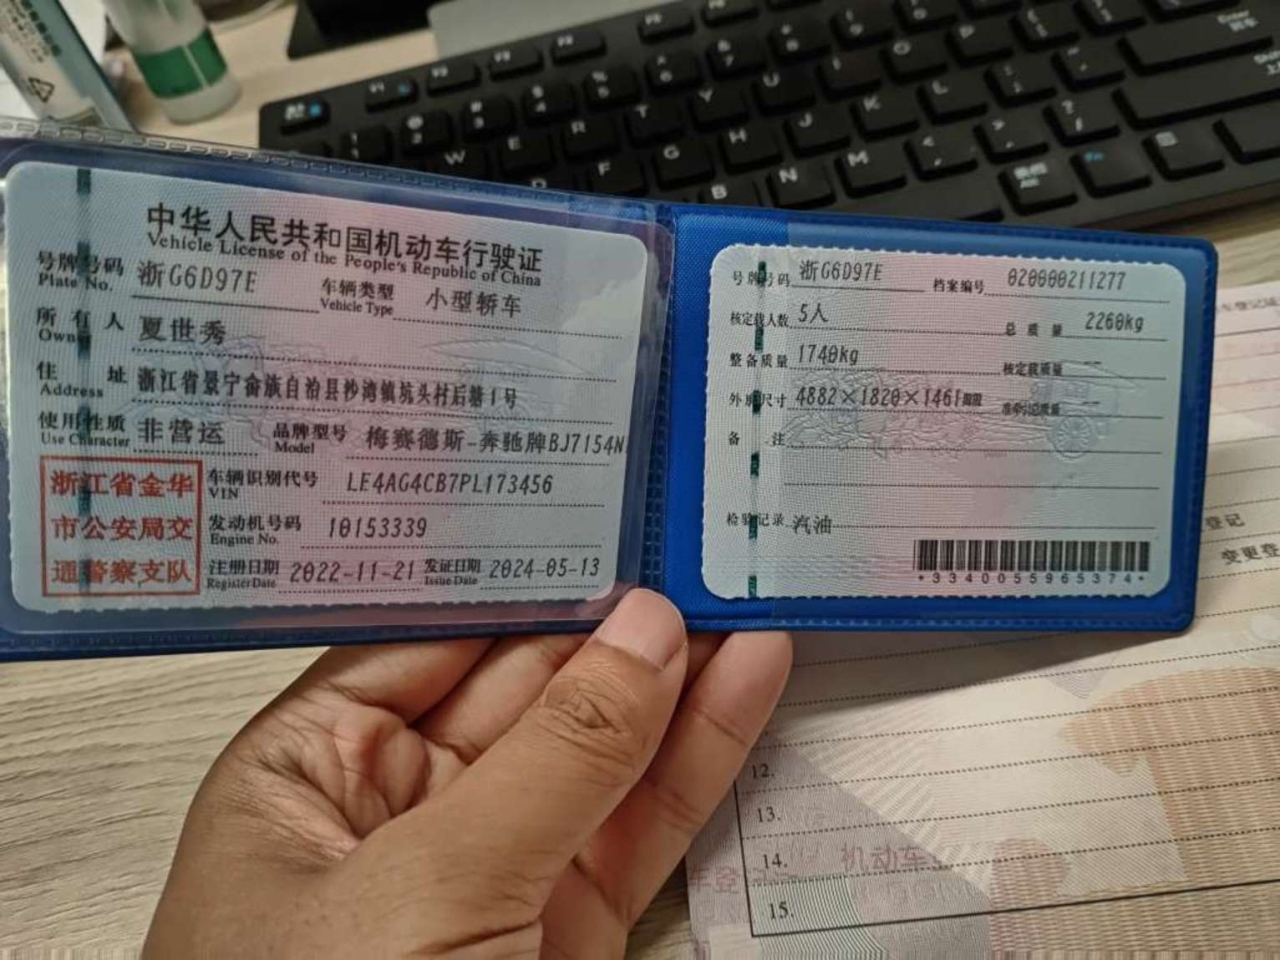 中华人民共和国机动车行驶证
Vehicle License of the People's Republic of China
号牌号码 浙G6D97E 车辆类型 小型轿车
Plate No. Vehicle Type
所有人 夏世秀
Owner
住址 浙江省景宁畲族自治县沙湾镇坑头村后塘1号
Address
使用性质 非营运 品牌型号 梅赛德斯-奔驰牌BJ7154N
Use Character Model
浙江省金华
市公安局交
通警察支队
车辆识别代号 LE4AG4CB7PL173456
VIN
发动机号码 10153339
Engine No.
注册日期 2022-11-21 发证日期 2024-05-13
Register Date Issue Date
号牌号码 浙G6D97E 档案编号 020000211277
核定载人数 5人 总质量 2260kg
整备质量 1740kg 核定载质量 --
外廓尺寸 4882×1820×1461mm 准牵引总质量 --
备注
检验记录 汽油
*3340055965374*
登记
变更登
12.
13.
14. 机动车
15.